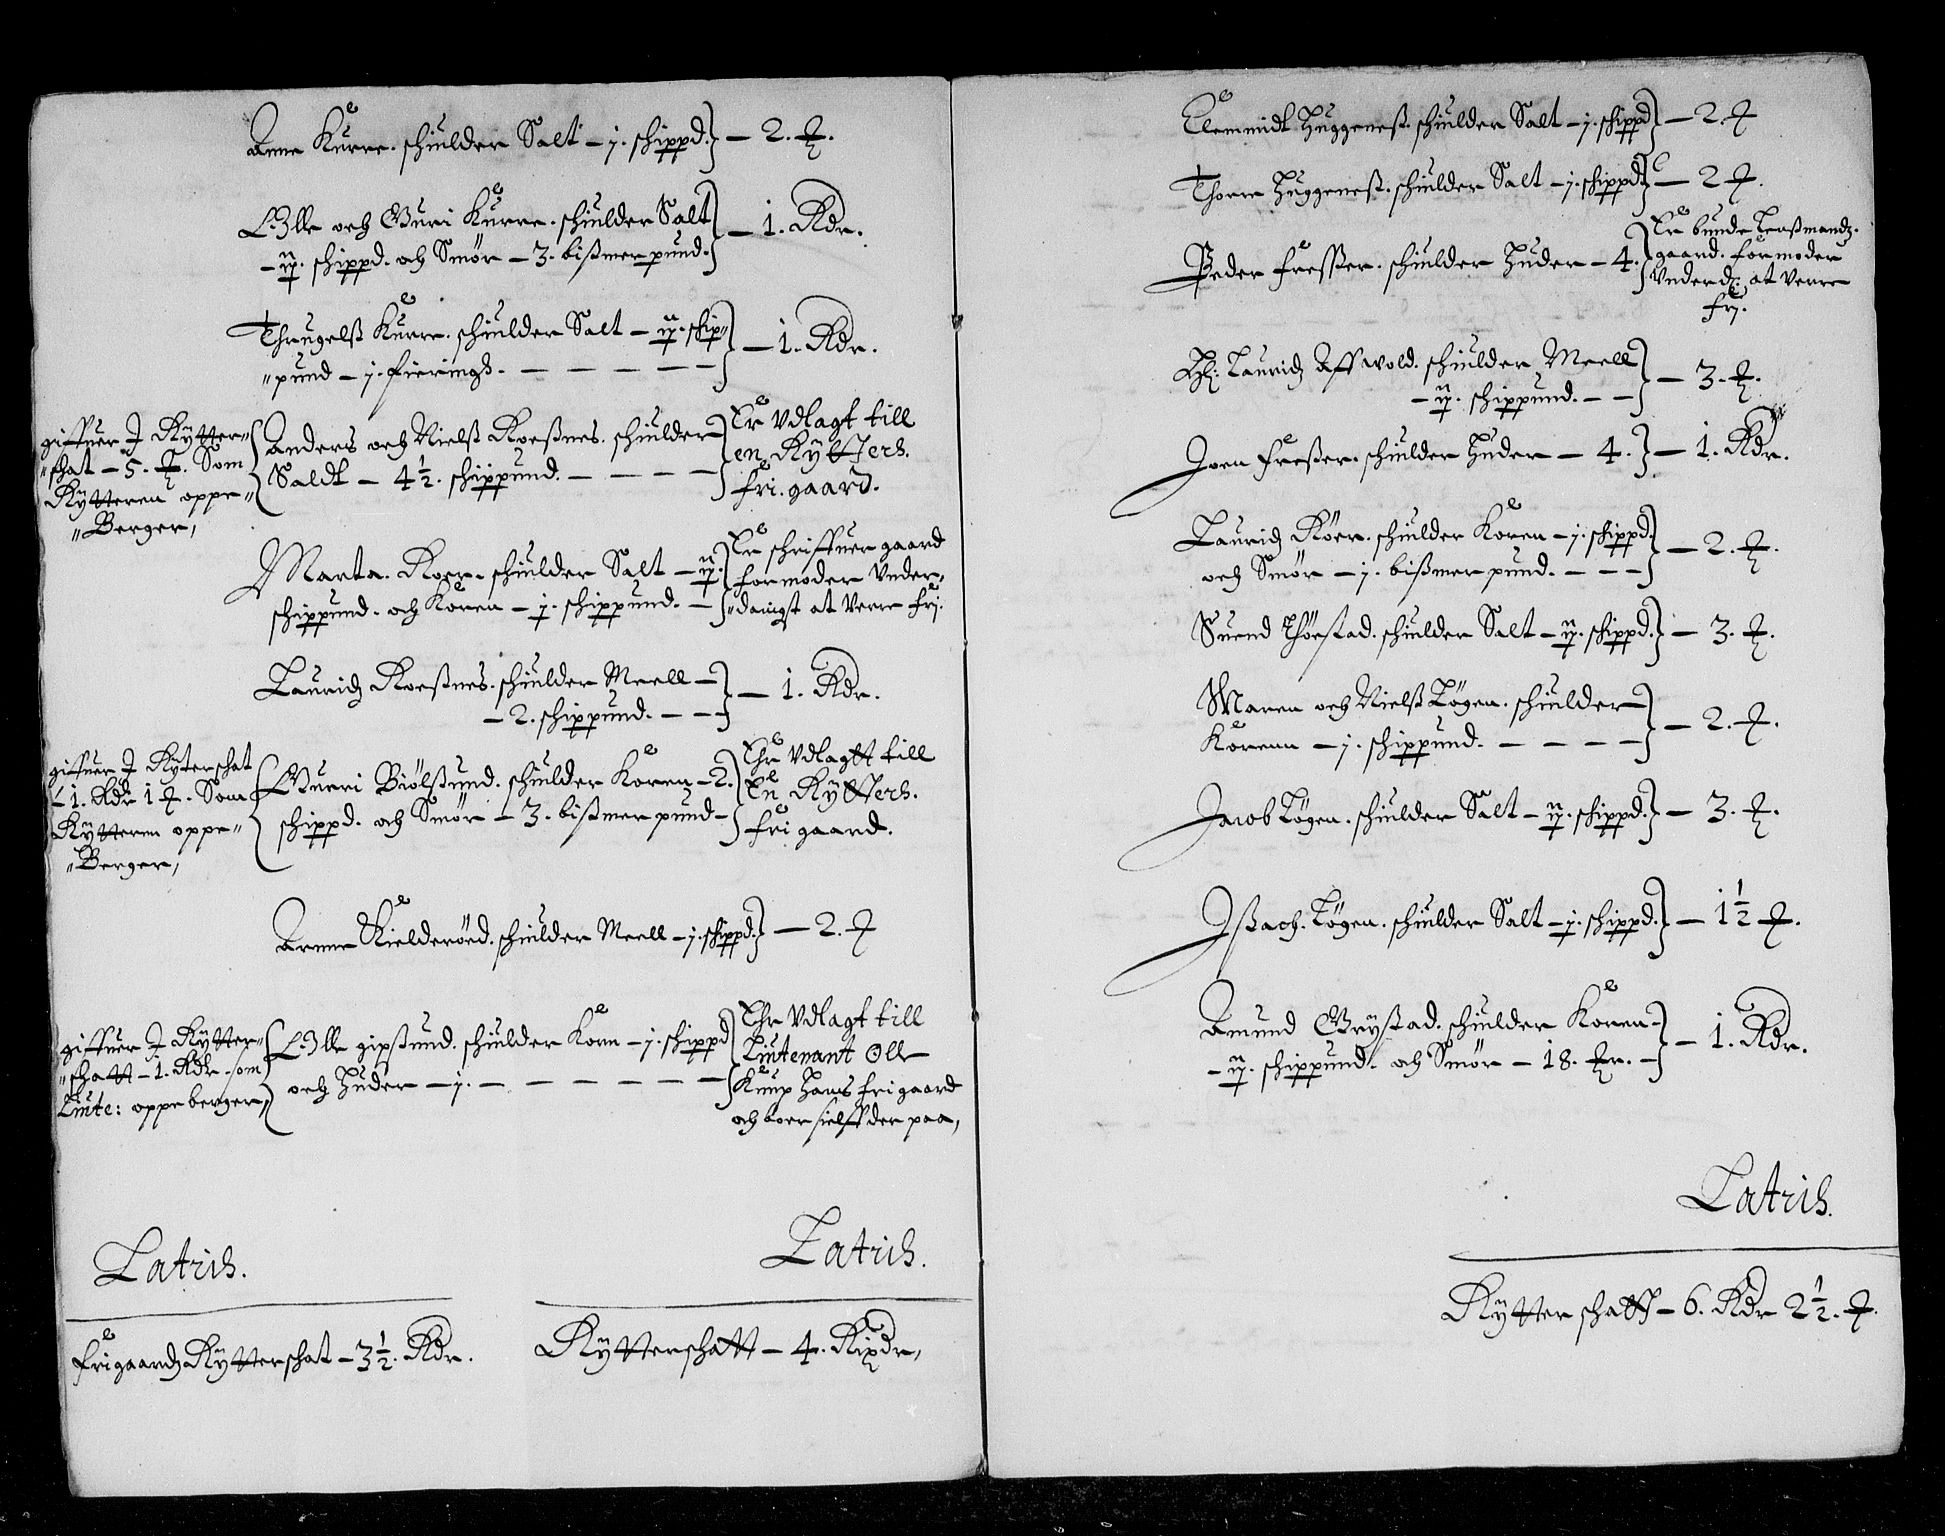 Anne Kure. schulder Salt – j. schippd. – 2. ƶ.
Olle och Guri Kure. schulder Salt
– ij. schippd. och Smör – 3. bißmerpund. – 1. Rdr.
Thrugelß Kure. schulder Salt – ij. skip"
"pund – j. fierings. – – – – – – 1. Rdr.
giffuer J Rÿtter"
"schat – 5. ƶ. Som
Rÿtteren oppe"
"Berger,
Anders och Nielß Roeßnes. schulder
Saldt – 4½. schippund. – – – –
Er Vdlagt till
en Rÿtters.
fri. gaard.
Marta. Roer. schulder Salt – ij.
schippund. och Koren – j. schippund. –
Er schriffuer gaard
formoder Vnder"
"danigst at Verre frj.
Lauridz Roeßnes. schulder Meell –
– 2. schippund. – – – 1. Rdr.
giffuer J Rÿterschat
– 1. Rdr 1 ƶ. Som
Rÿtteren oppe"
"Berger,
Gurri Biölßund. schulder Koren – 2.
schippd. och Smör – 3. bißmerpund –
Ehr Vdlagtt till
En Rÿtters.
fri gaard.
Arne Kielderöed. schulder Meell – j. schippd. – 2. ƶ
giffuer J Rÿtter"
"schatt – 1. Rdr. som
Liute: oppe berger,
Olle gipßund. schulder Korn – j. schippd
och Huder – j. – – – – – – –
Ehr Vdlagt till
Liutenant Olle
Knup Hans fri gaard
och boer sielff der paa,
Latris.
Latris.
frigaardz Rÿtterschat – 3½. Rdr.
Rÿtterschatt – 4. Rixdr,
Clemmidt Huggeneß. schulder Salt – j. schippd – 2. ƶ
Thorre Huggeneß. schulder Salt – j. schippd. – 2 ƶ.
Peder freßer. schulder Huder – 4.
Er bunde Lenßmandz.
gaard. formoder
Vnderd: at Verre
frj.
H: Lauridz Affwold. schulder Meell
– ij. schippund. – – – 3. ƶ.
Joen freßer. schulder Huder – 4. – 1. Rdr.
Lauridz Röer. schulder Koren – j. schippd.
och Smör – j. bißmerpund. – – – – 2. ƶ.
Suend Thörstad. schulder Salt – ij. schippd. – 3. ƶ.
Maren och Nielß Lögen. schulder
Korenn – j. schippund. – – – – – 2. ƶ.
Jacob Lögen. schulder Salt – ij. schippd. – 3. ƶ.
Jßach. Lögen. schulder Salt – j. schippd. – 1½ ƶ.
Amund Grÿstad. schulder Koren –
– ij. schippund. och Smör – 18. – 1. Rdr.
Latris.
Rÿtter schatt – 6. Rdr 2½. ƶ.